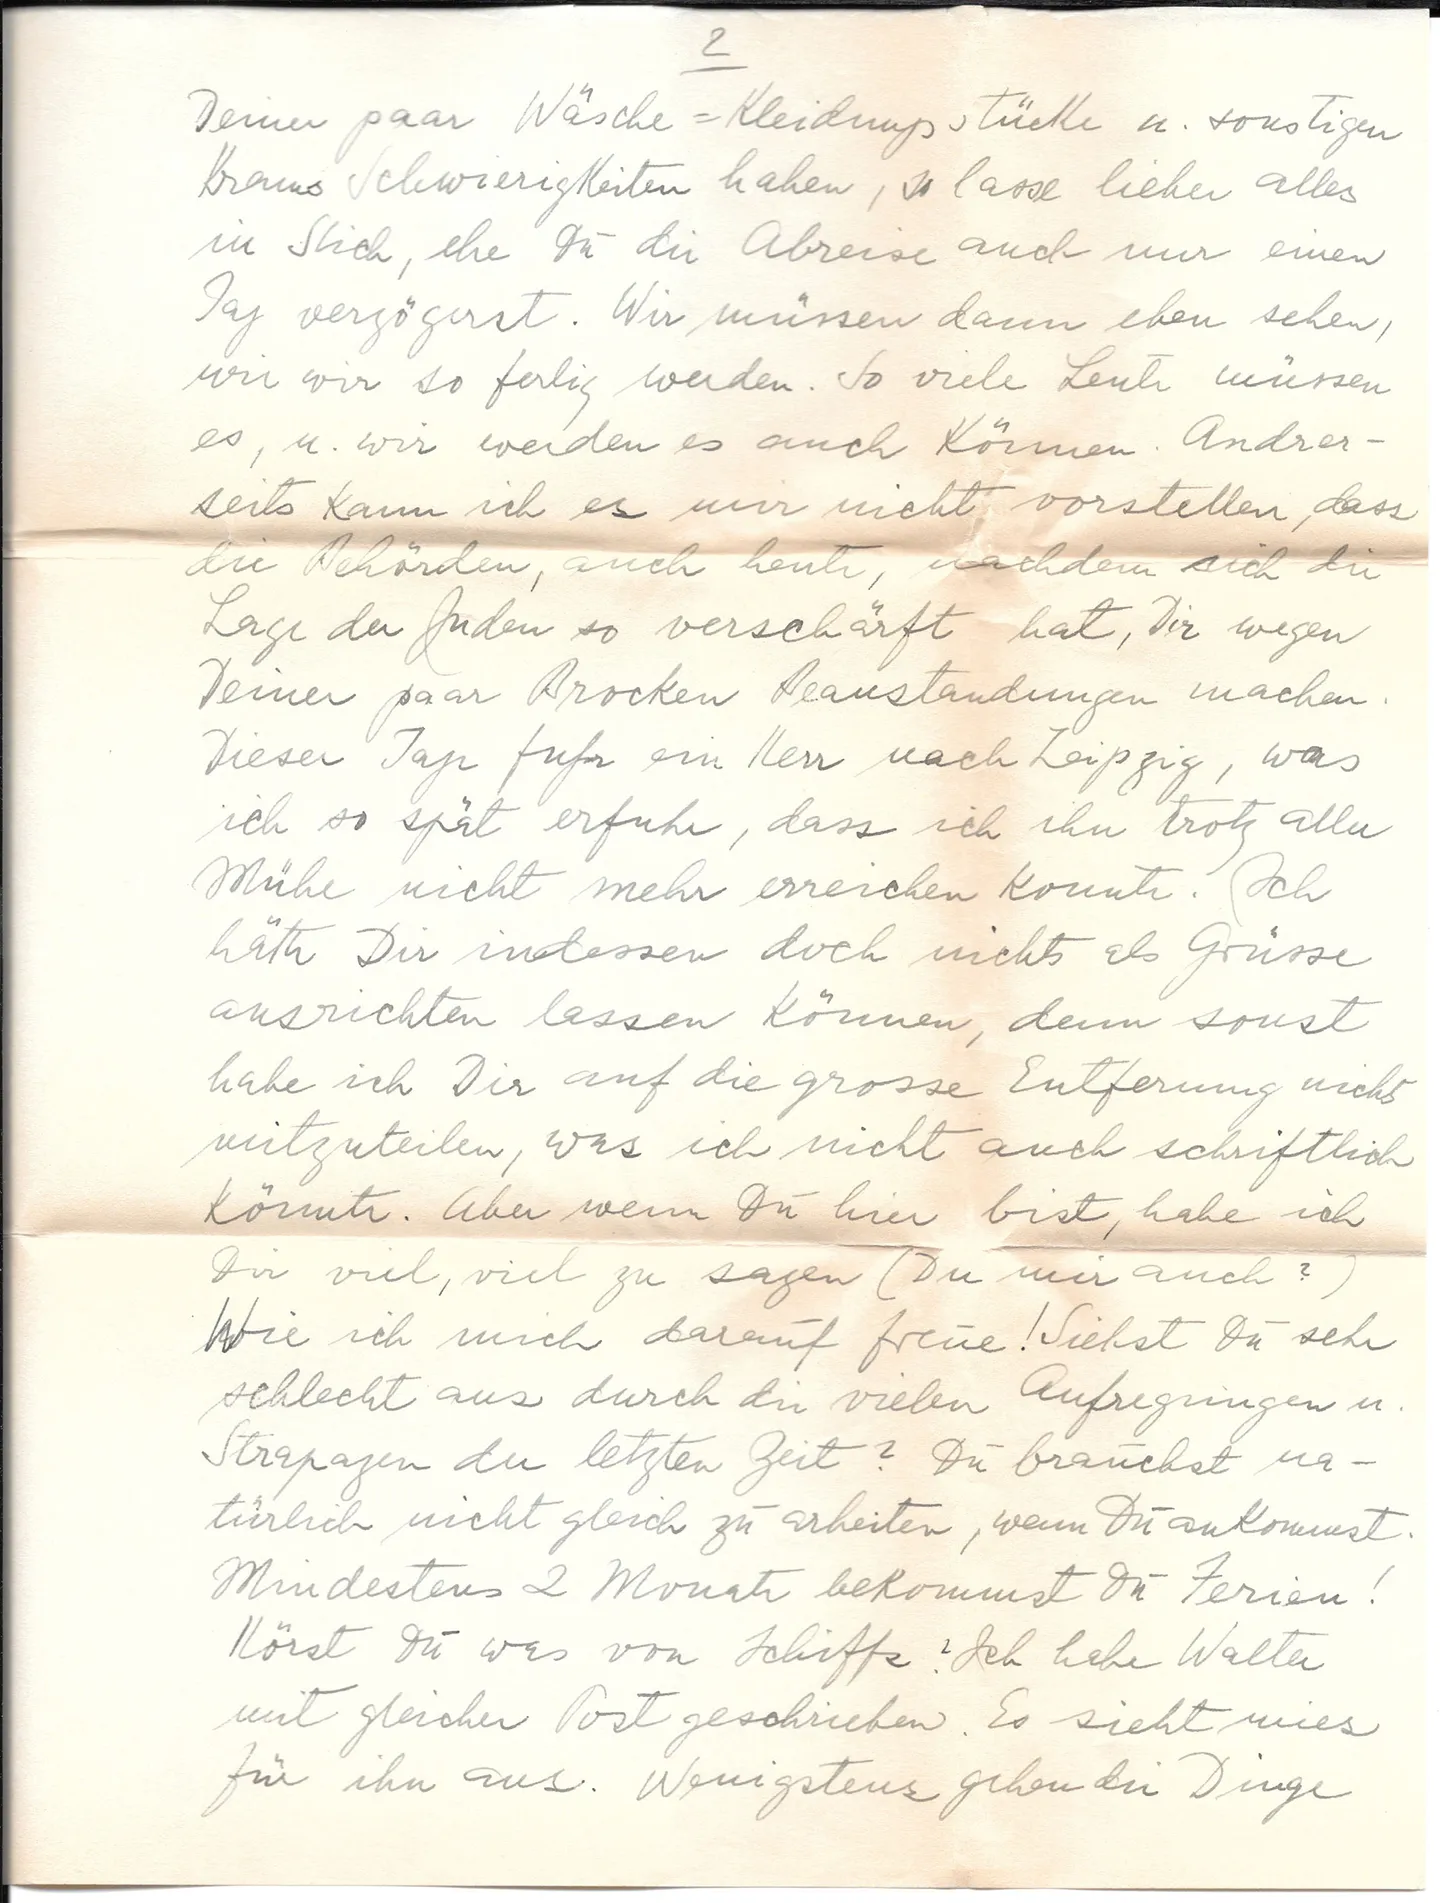 2
Deiner paar Wäsche = Kleidungsstücke u. sonstigen
Krams Schwierigkeiten haben, so lasse lieber alles
in Stich, ehe Du die Abreise auch nur einen
Tag verzögerst. Wir müssen dann eben sehen,
wie wir so fertig werden. So viele Leute müssen
es, u. wir werden es auch können. Andrer-
seits kann ich es mir nicht vorstellen, dass
die Behörden, auch heute, nachdem sich die
Lage der Juden so verschärft hat, Dir wegen
Deiner paar Brocken Beanstandungen machen.
Dieser Tage fuhr ein Herr nach Leipzig, was
ich so spät erfuhr, dass ich ihn trotz aller
Mühe nicht mehr erreichen konnte. (Ich
hätte Dir indessen doch nichts als Grüsse
ausrichten lassen können, denn sonst
habe ich Dir auf die grosse Entfernung nichts
mitzuteilen, was ich nicht auch schriftlich
könnte. Aber wenn Du hier bist, habe ich
Dir viel, viel zu sagen (Du mir auch?)
Wie ich mich darauf freue! Siehst Du sehr
schlecht aus durch die vielen Aufregungen u.
Strapazen der letzten Zeit? Du brauchst na-
türlich nicht gleich zu arbeiten, wenn Du ankommst.
Mindestens 2 Monate bekommst Du Ferien!
Hörst Du was von Schiffs? Ich habe Walter
mit gleicher Post geschrieben. Es sieht mies
für ihn aus. Wenigstens gehen die Dinge